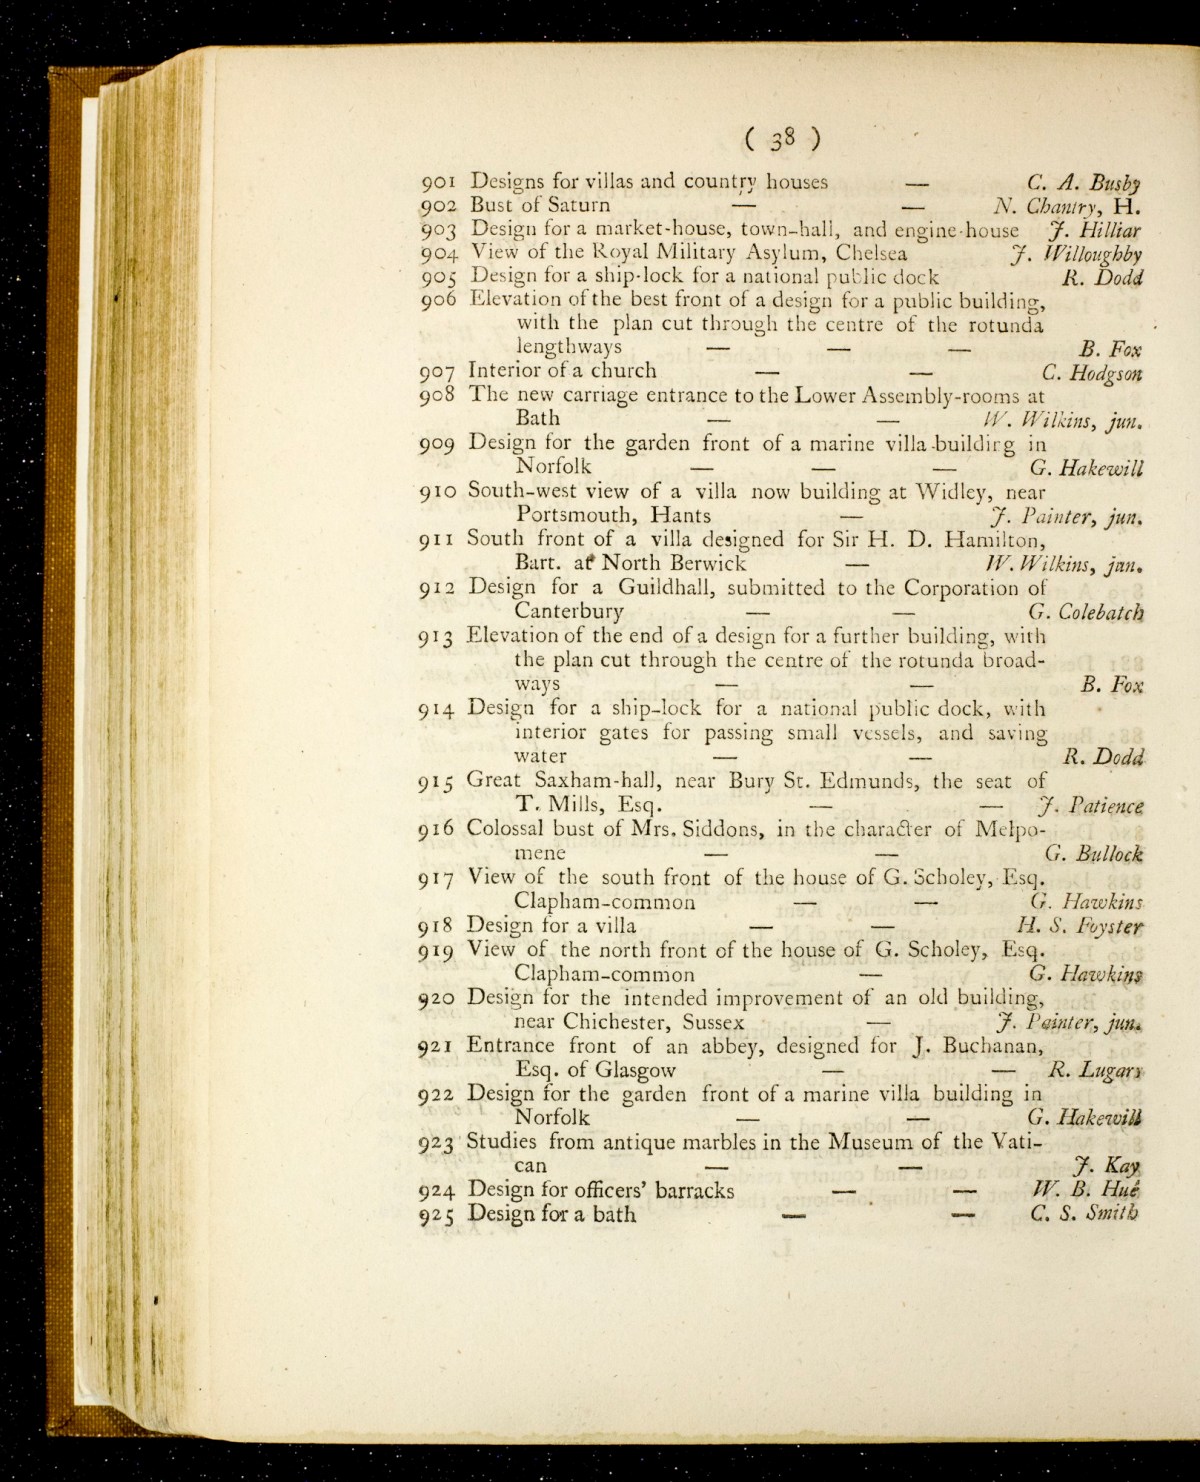 ( 38 )
901 Designs for villas and country houses — C. A. Busby
902 Bust of Saturn — — N. Chantry, H.
903 Design for a market-house, town-hall, and engine-house J. Hilliar
904 View of the Royal Military Asylum, Chelsea J. Willoughby
905 Design for a ship-lock for a national public dock R. Dodd
906 Elevation of the best front of a design for a public building,
with the plan cut through the centre of the rotunda
lengthways — — — B. Fox
907 Interior of a church — — C. Hodgson
908 The new carriage entrance to the Lower Assembly-rooms at
Bath — — W. Wilkins, jun.
909 Design for the garden front of a marine villa building in
Norfolk — — — G. Hakewill
910 South-west view of a villa now building at Widley, near
Portsmouth, Hants — J. Painter, jun.
911 South front of a villa designed for Sir H. D. Hamilton,
Bart. at North Berwick — W. Wilkins, jun.
912 Design for a Guildhall, submitted to the Corporation of
Canterbury — — G. Colebatch
913 Elevation of the end of a design for a further building, with
the plan cut through the centre of the rotunda broad-
ways — — B. Fox
914 Design for a ship-lock for a national public dock, with
interior gates for passing small vessels, and saving
water — — R. Dodd
915 Great Saxham-hall, near Bury St. Edmunds, the seat of
T. Mills, Esq. — — J. Patience
916 Colossal bust of Mrs. Siddons, in the character of Melpo-
mene — — G. Bullock
917 View of the south front of the house of G. Scholey, Esq.
Clapham-common — — G. Hawkins
918 Design for a villa — — H. S. Foyster
919 View of the north front of the house of G. Scholey, Esq.
Clapham-common — G. Hawkins
920 Design for the intended improvement of an old building,
near Chichester, Sussex — J. Painter, jun.
921 Entrance front of an abbey, designed for J. Buchanan,
Esq. of Glasgow — — R. Lugars
922 Design for the garden front of a marine villa building in
Norfolk — — G. Hakewill
923 Studies from antique marbles in the Museum of the Vati-
can — — J. Kay
924 Design for officers' barracks — — W. B. Hué
925 Design for a bath — — C. S. Smith